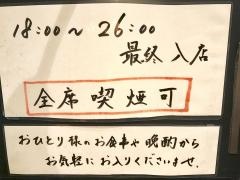 18:00～26:00
最終入店
全席喫煙可
おひとり様のお食事や晩酌から
お気軽にお入りくださいませ.